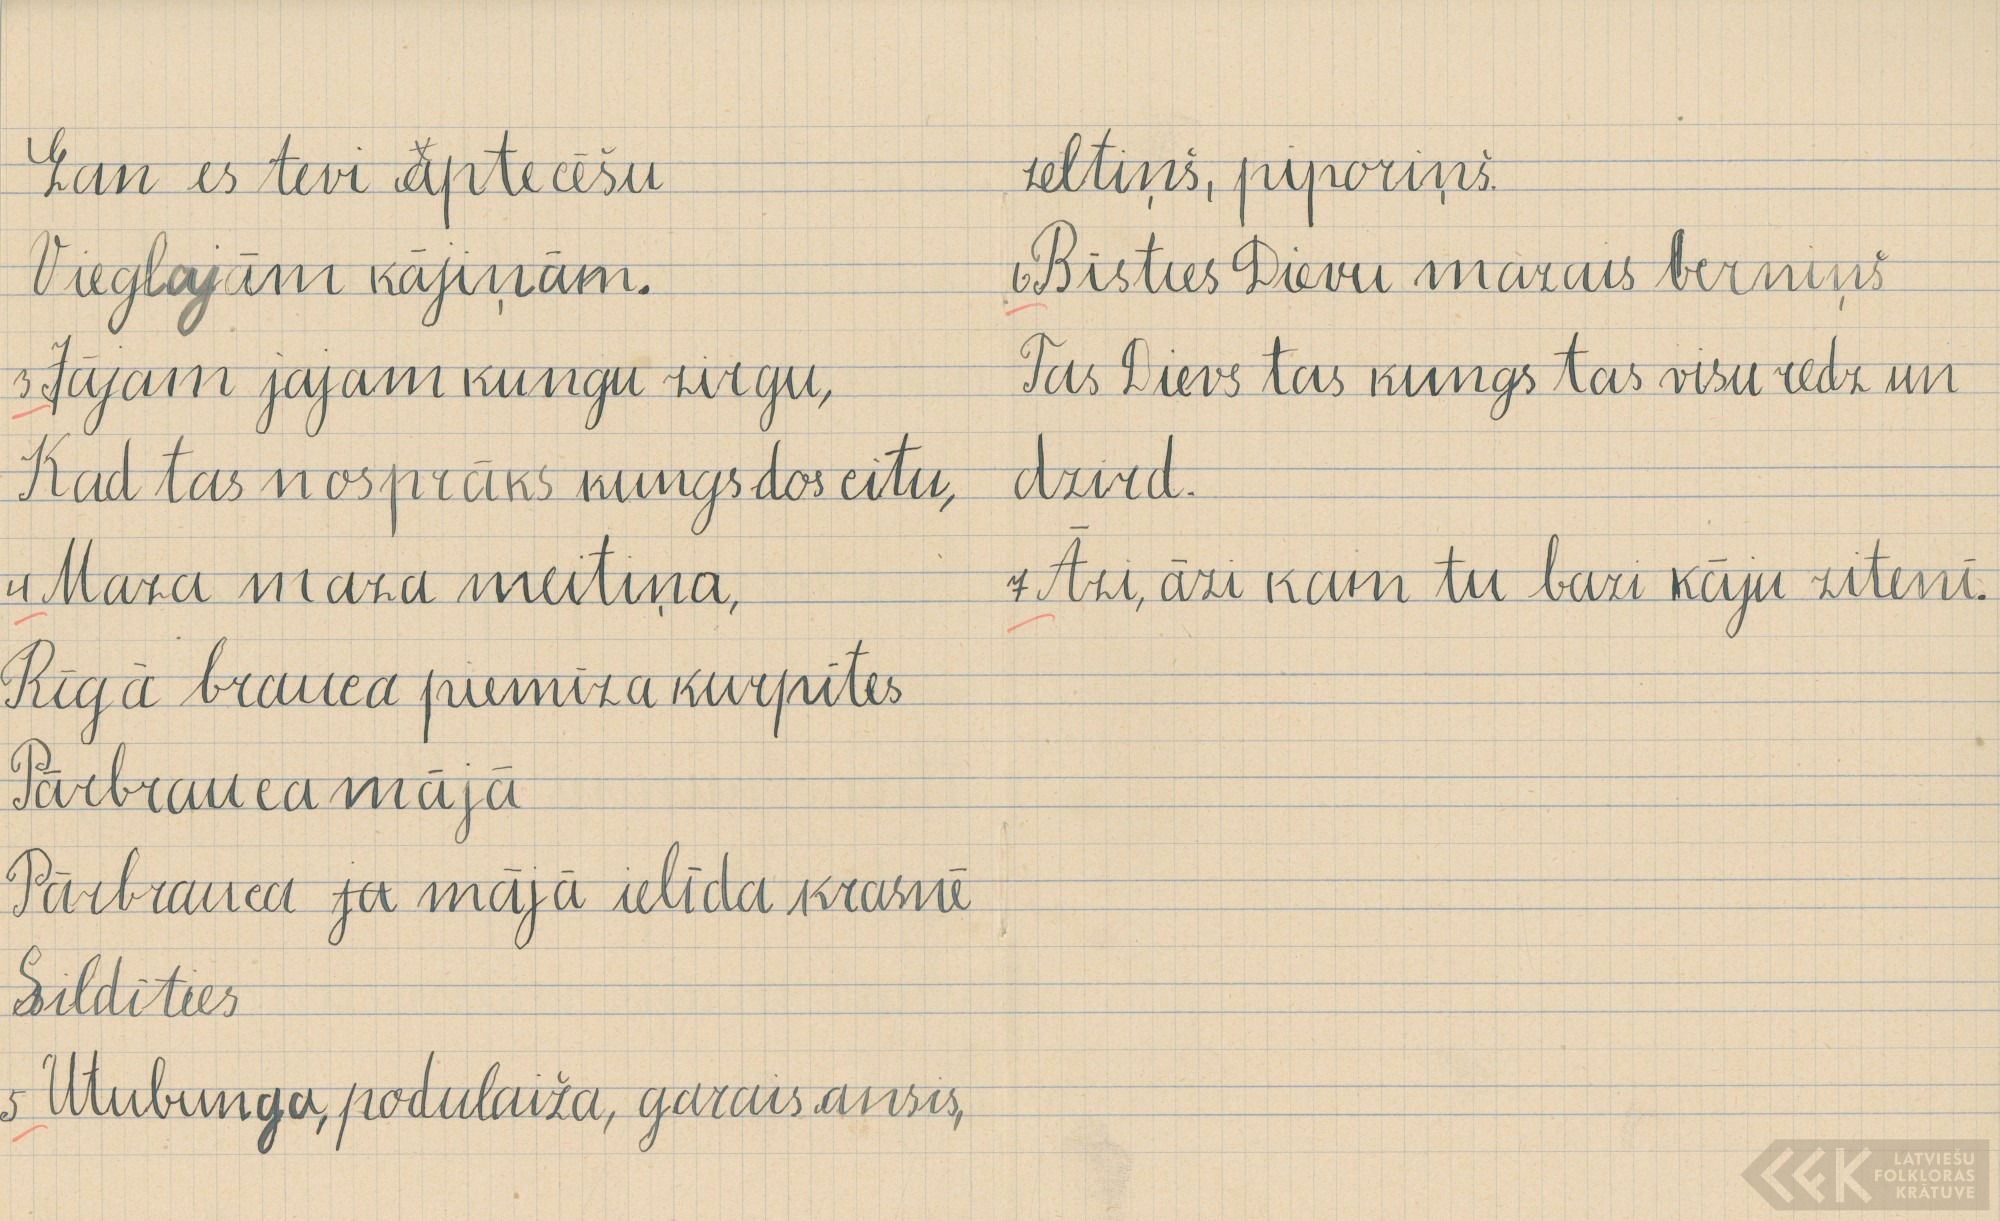 Gan es tevi āptecēšu
Vieglajām kājiņām.
3 Jājam jajam kungu zirgu,
Kad tas nosprāks kungs dos citu,
4 Maza maza meitiņa,
Rīgā brauca piemīza kurpītes
Pārbrauca mājā
Pārbrauca ja mājā ielīda krasnē
Sildīties
5 Utubunga, podulaiža, garais ansis,
zeltiņš, piporiņš.
6 Bīsties Dievu mazais berniņš
Tas Dievs tas kungs tas visu redz un
dzird.
7 Āzi, āzi kam tu bazi kāju zitenī.
LATVIEŠU
FOLKLORAS
KRĀTUVE